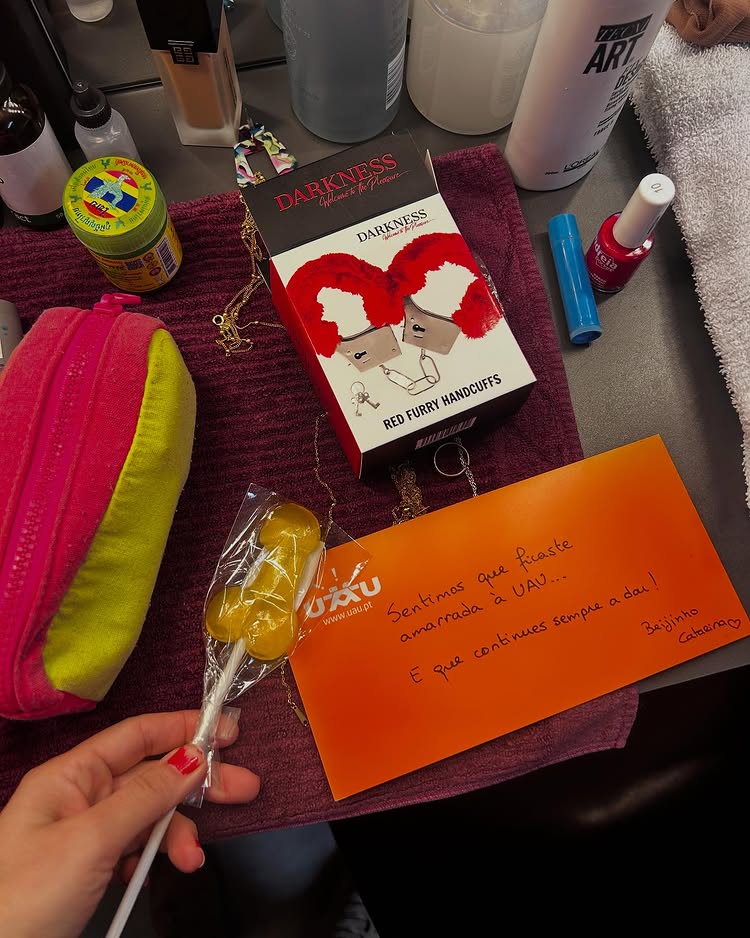 TECNI
ART
L'ORÉAL
DARKNESS
Welcome to the Pleasure
DARKNESS
Welcome to the Pleasure
RED FURRY HANDCUFFS
10
UAU
www.uau.pt
Sentimos que ficaste
amarrada à UAU...
E que continues sempre a dar!
Beijinho
Catarina♡